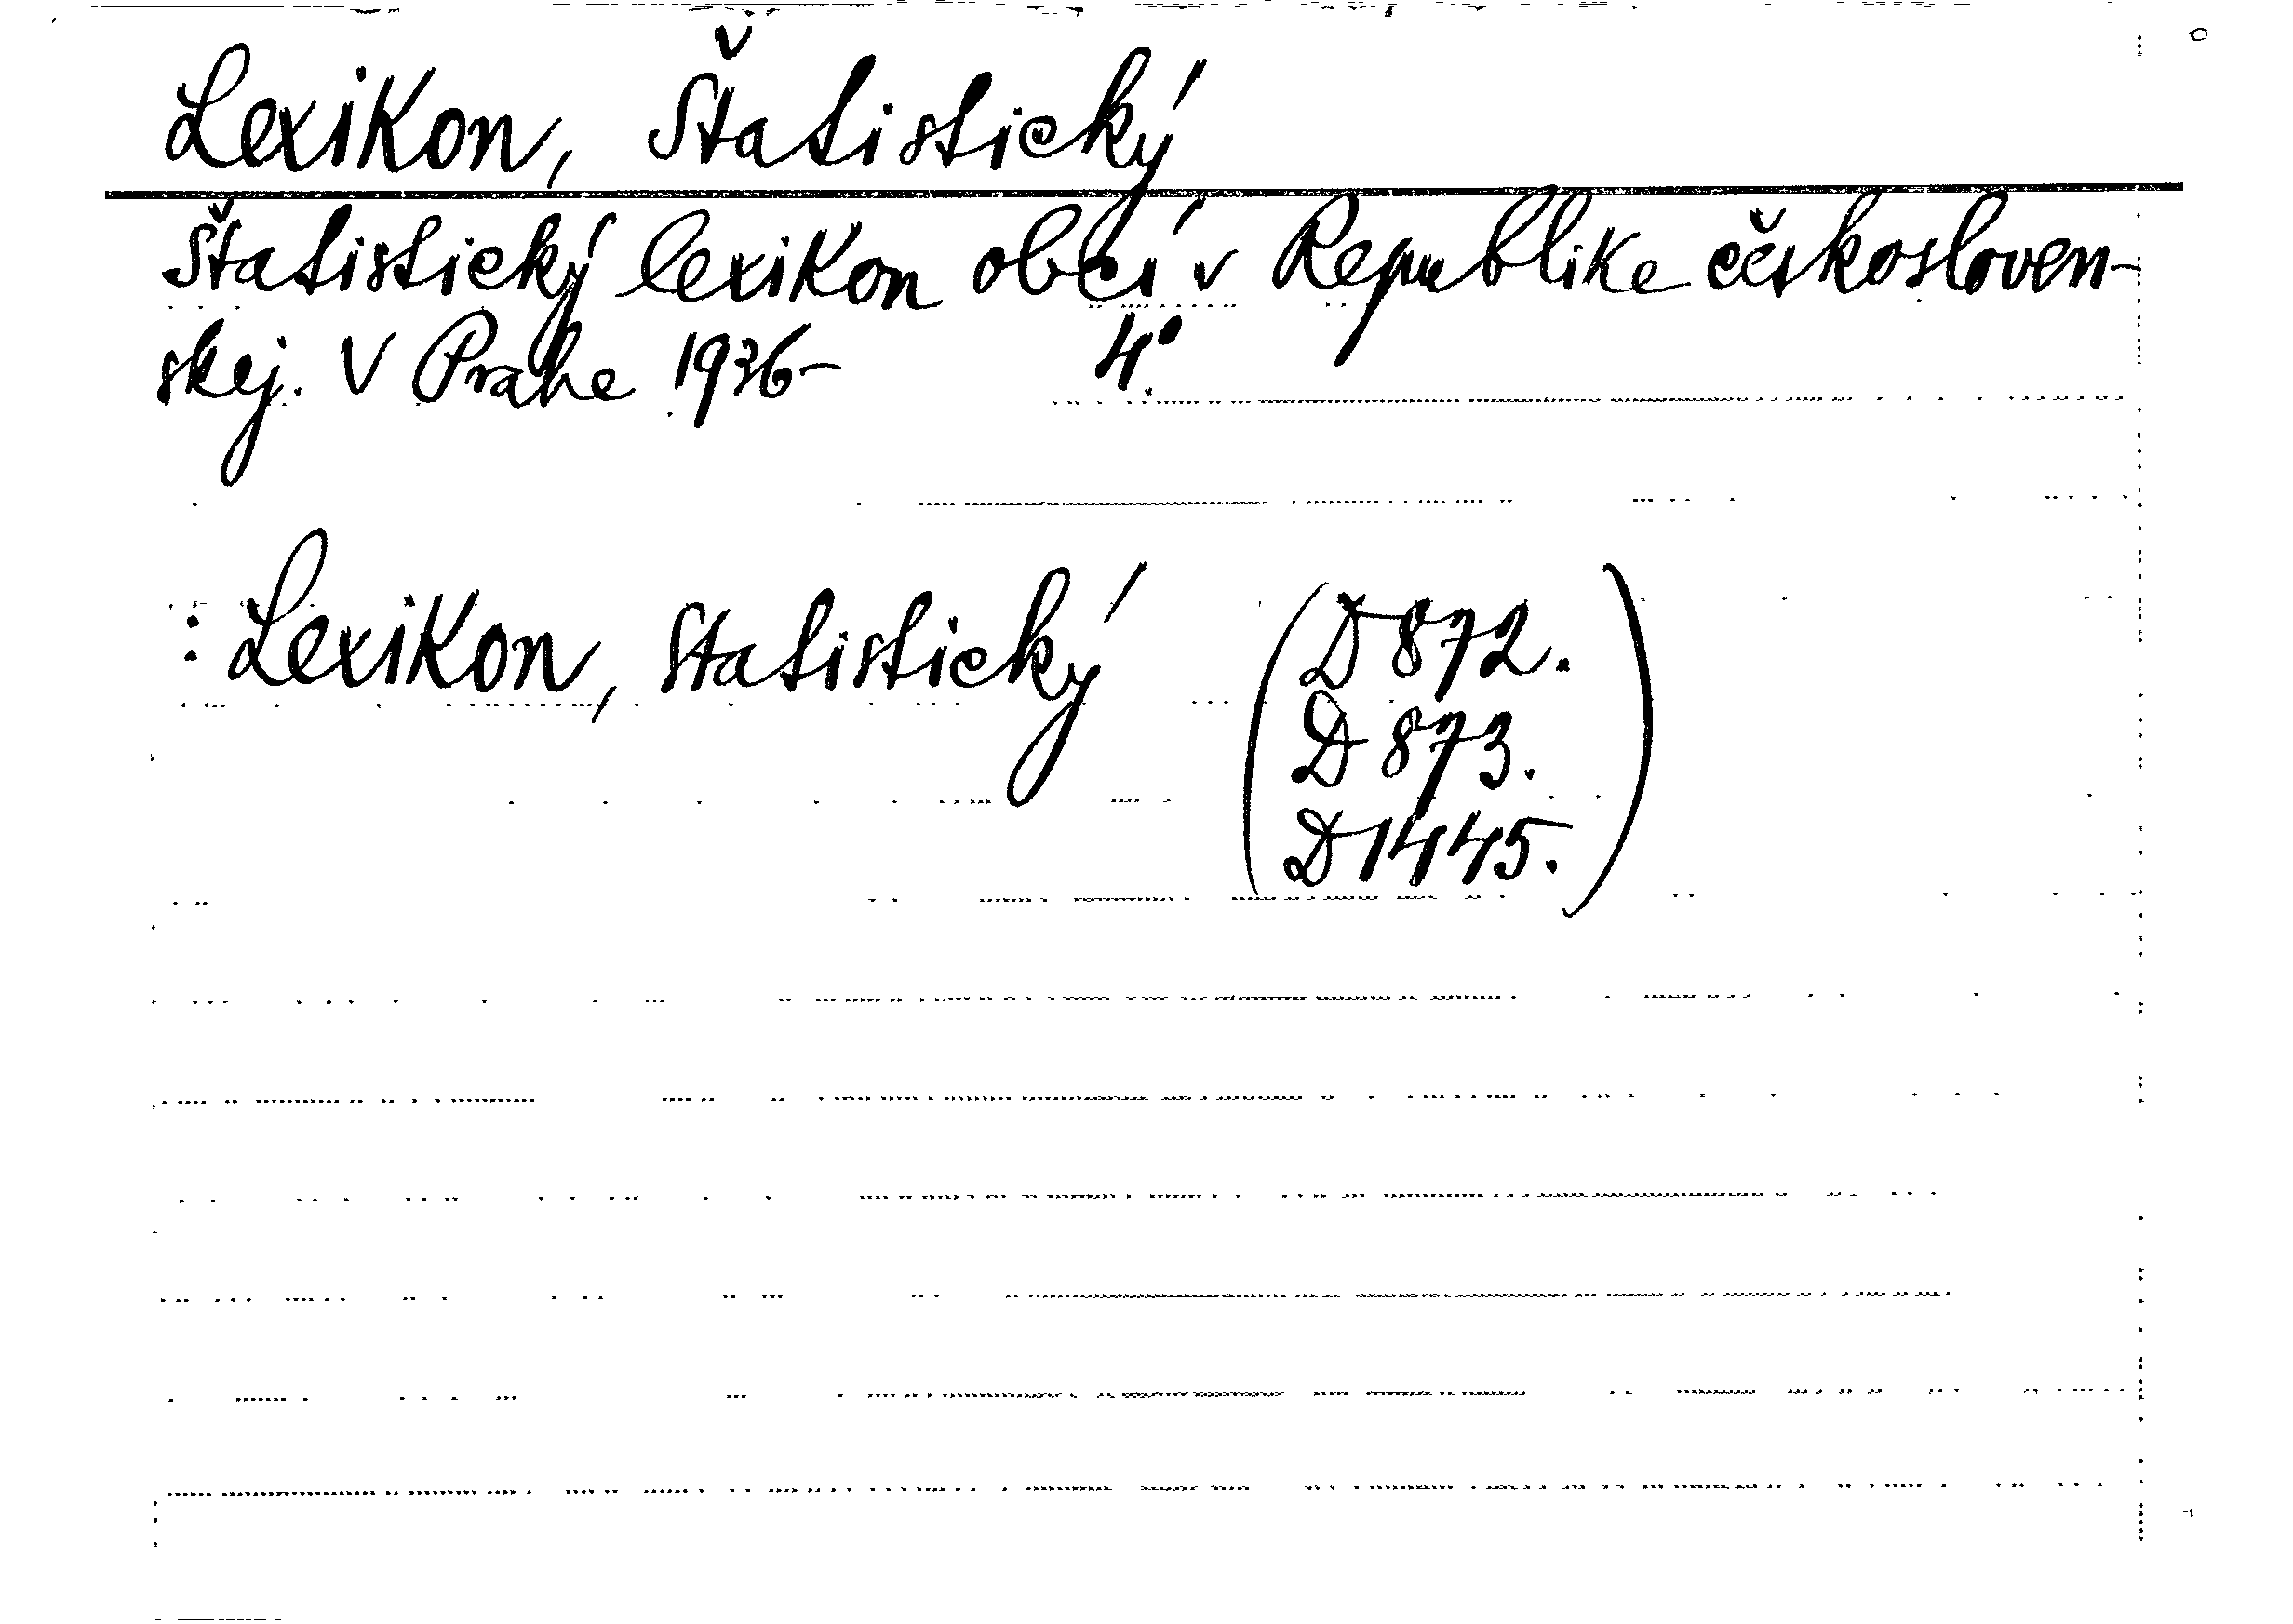 Lexikon, Štatistický
Štatistický lexikon obcí v Republike českosloven-
skej. V Prahe 1936- 4°.
: Lexikon, statistický (D 872.
D 873.
D 1445.)